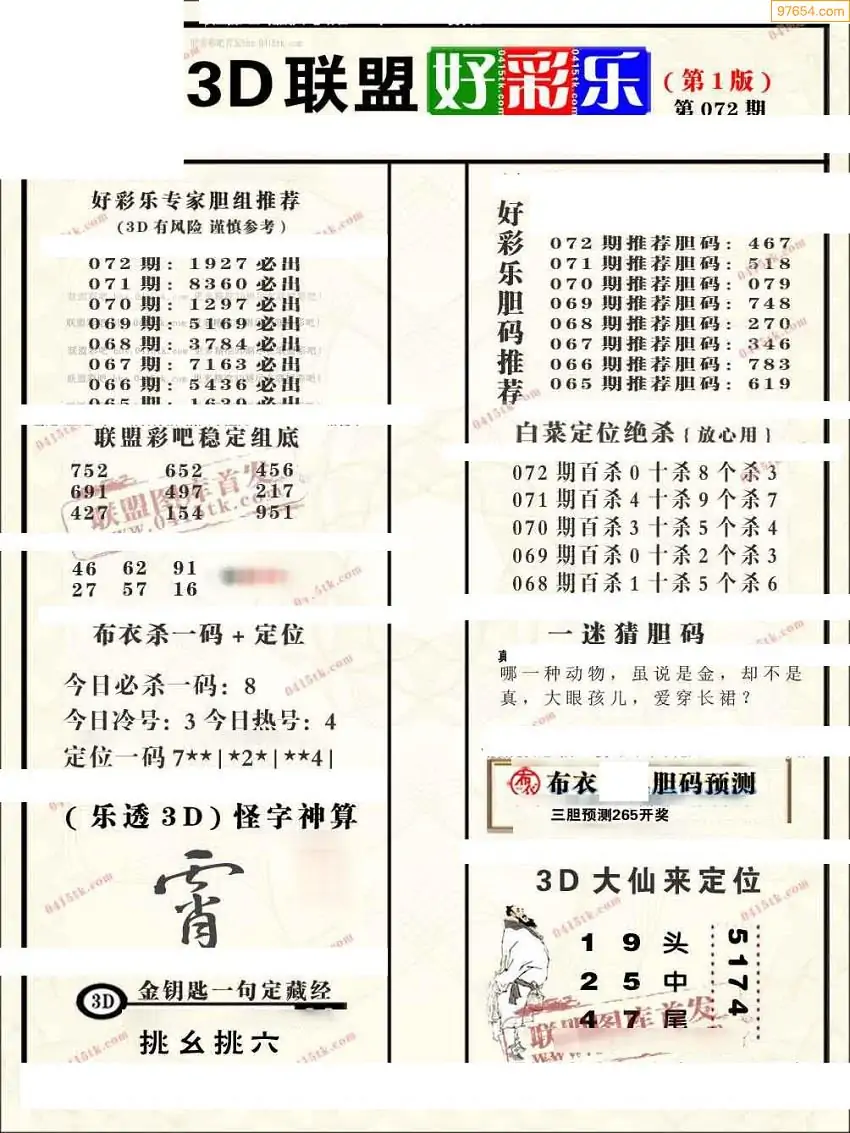 97654.com
3D联盟好彩乐
(第1版)
第072期
好彩乐专家胆组推荐
(3D有风险 谨慎参考)
072期: 1927必出
071期: 8360必出
070期: 1297必出
069期: 5169必出
068期: 3784必出
067期: 7163必出
066期: 5436必出
065期: 1639必出
联盟彩吧稳定组底
752 652 456
691 497 217
427 154 951
46 62 91
27 57 16
布衣杀一码+定位
今日必杀一码: 8
今日冷号: 3 今日热号: 4
定位一码 7**|*2*|**4|
(乐透3D)怪字神算
霄
3D 金钥匙一句定藏经
挑幺挑六
好彩乐胆码推荐
072期推荐胆码: 467
071期推荐胆码: 518
070期推荐胆码: 079
069期推荐胆码: 748
068期推荐胆码: 270
067期推荐胆码: 346
066期推荐胆码: 783
065期推荐胆码: 619
白菜定位绝杀{放心用}
072期百杀0十杀8个杀3
071期百杀4十杀9个杀7
070期百杀3十杀5个杀4
069期百杀0十杀2个杀3
068期百杀1十杀5个杀6
一迷猜胆码
哪一种动物，虽说是金，却不是
真，大眼孩儿，爱穿长裙？
布衣 胆码预测
三胆预测265开奖
3D大仙来定位
1 9 头
2 5 中
4 7 尾
5174
联盟图库首发
www.0415tk.com
0415tk.com